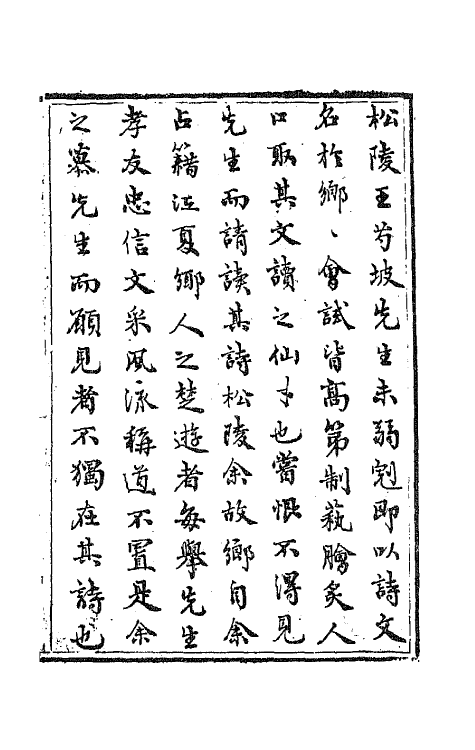 松陵王芍坡先生未弱冠即以詩文
名於鄉、會試皆高第制蓺膾炙人
口取其文讀之仙才也嘗恨不得見
先生而請讀其詩松陵余故鄉自余
占籍江夏鄉人之楚遊者每舉先生
孝友忠信文采風泳稱道不置是余
之慕先生而願見者不獨在其詩也